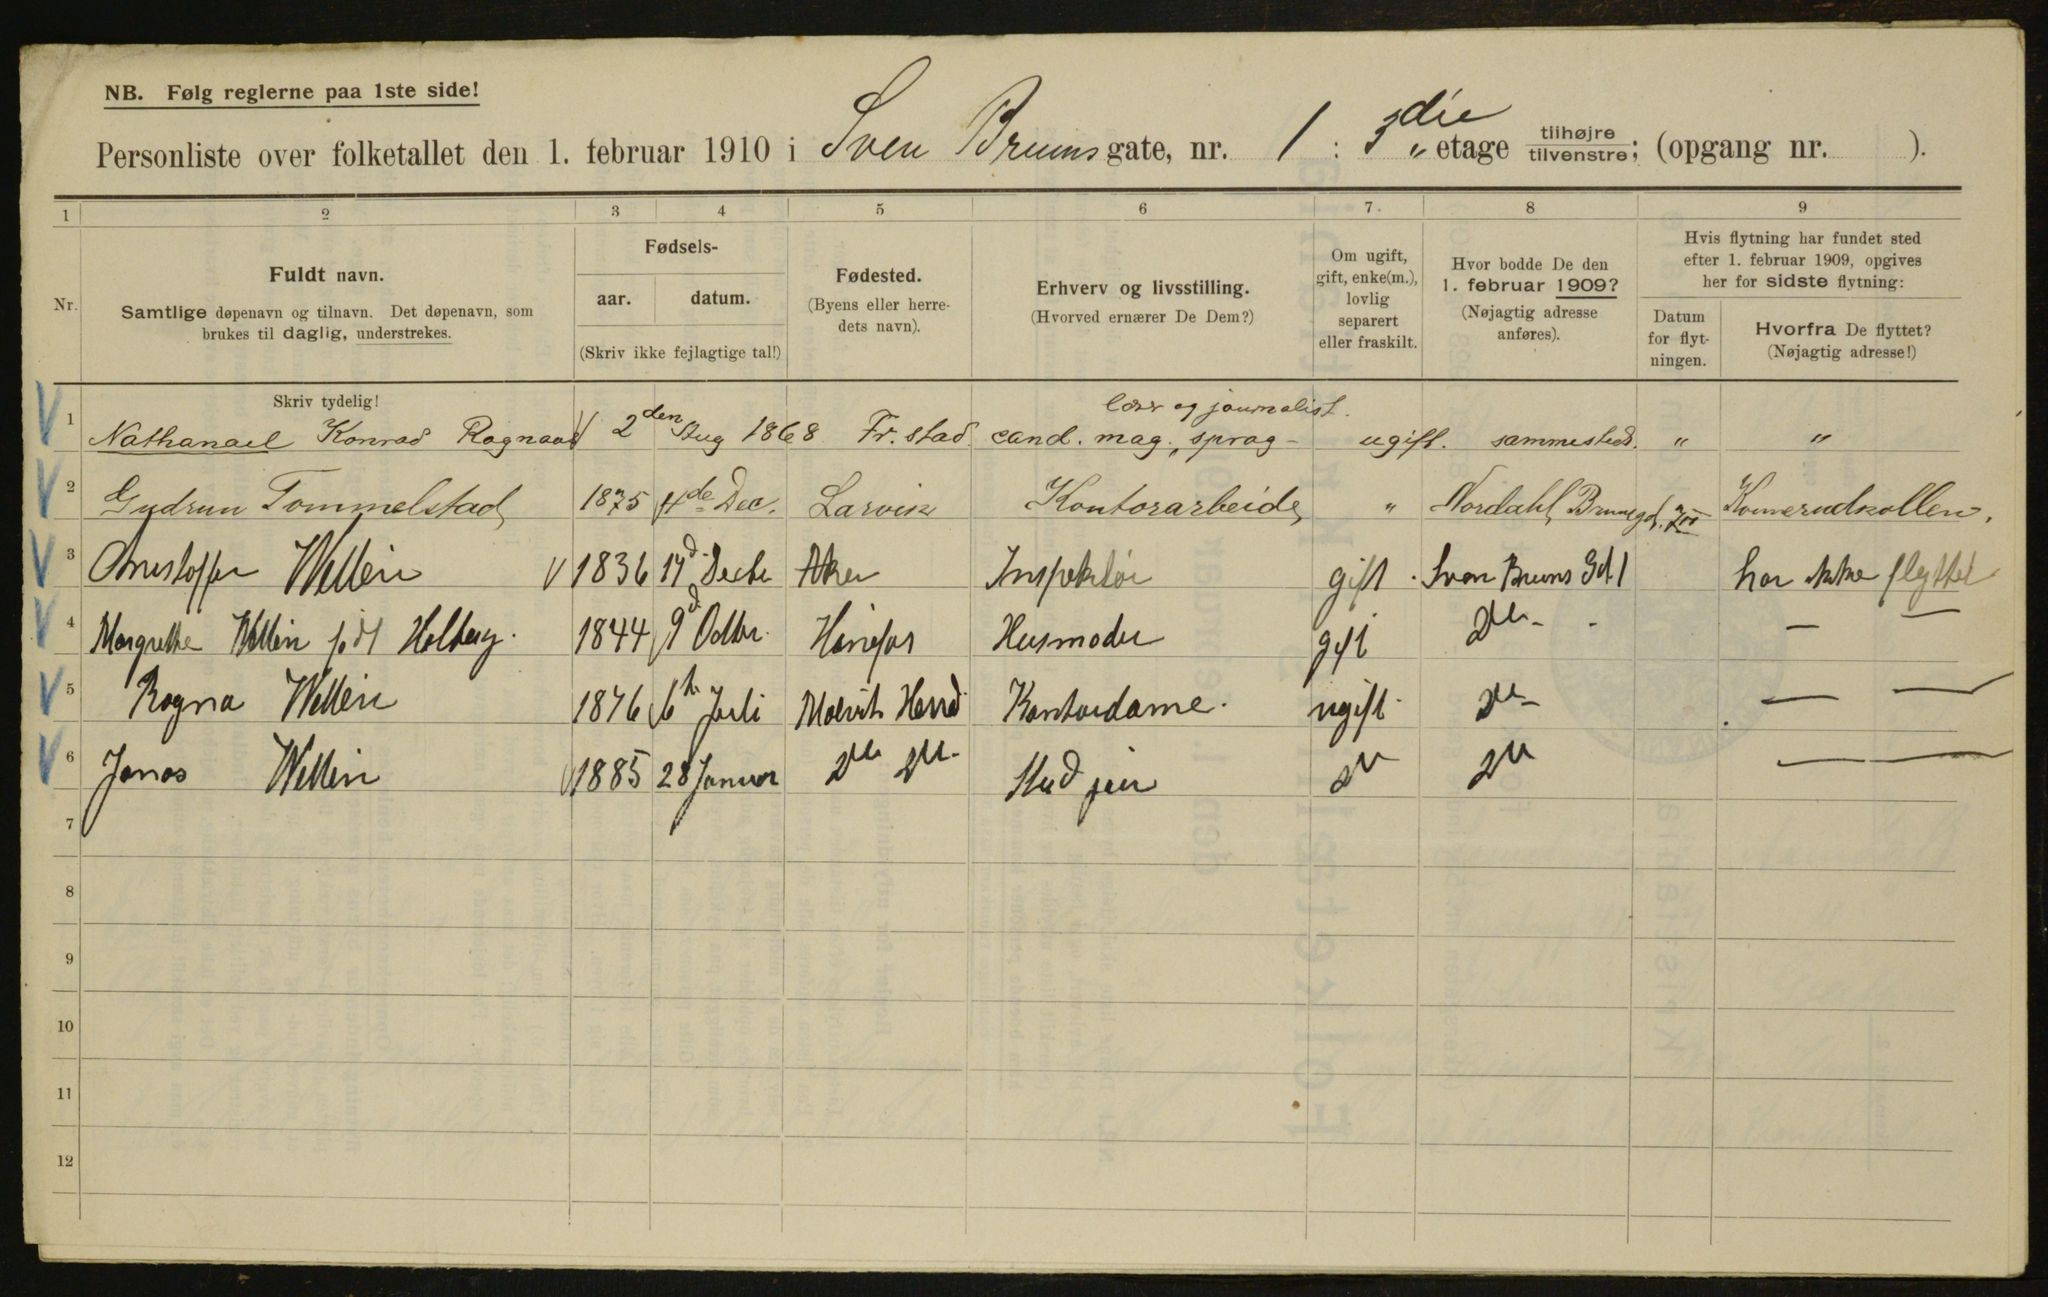 NB. Følg reglerne paa 1ste side!
Personliste over folketallet den 1. februar 1910 i Sven Bruunsgate, nr. 1 : 3die etage tilhøjre/tilvenstre; (opgang nr. ).
1 2 3 4 5 6 7. 8 9
Nr.
Fuldt navn.
Samtlige døpenavn og tilnavn. Det døpenavn, som
brukes til daglig, understrekes.
Fødsels-
aar. datum.
(Skriv ikke fejlagtige tal!)
Fødested.
(Byens eller herre-
dets navn).
Erhverv og livsstilling.
(Hvorved ernærer De Dem?)
Om ugift,
gift, enke(m.),
lovlig
separert
eller fraskilt.
Hvor bodde De den
1. februar 1909?
(Nøjagtig adresse
anføres).
Hvis flytning har fundet sted
efter 1. februar 1909, opgives
her for sidste flytning:
Datum
for flyt-
ningen.
Hvorfra De flyttet?
(Nøjagtig adresse!)
Skriv tydelig!
lærer og journalist.
1 Nathanael Konrad Rognaas 2den Aug 1868 Fr.stad cand. mag., sprog- ugift. sammesteds. " "
2 Gudrun Tommelstad 1875 4de Dec. Larvik Kontorarbeide " Nordahl Brunsgd. Konnerudkollen.
3 Christoffer Wellén 1836 17d Decbr Aker Inspektør gift. Sven Bruns Gd 1 har ikke flyttet
4 Margrethe Wellén født Holberg. 1844 9d Octbr. Hønefos Husmoder gift Do - — —
5 Ragna Wellén 1876 6te Juli Modum Herred Kontordame. ugift. Do - — —
6 Jonas Wellén 1885 28 Januar Do Do Stud jur Do Do — —
7
8
9
10
11
12